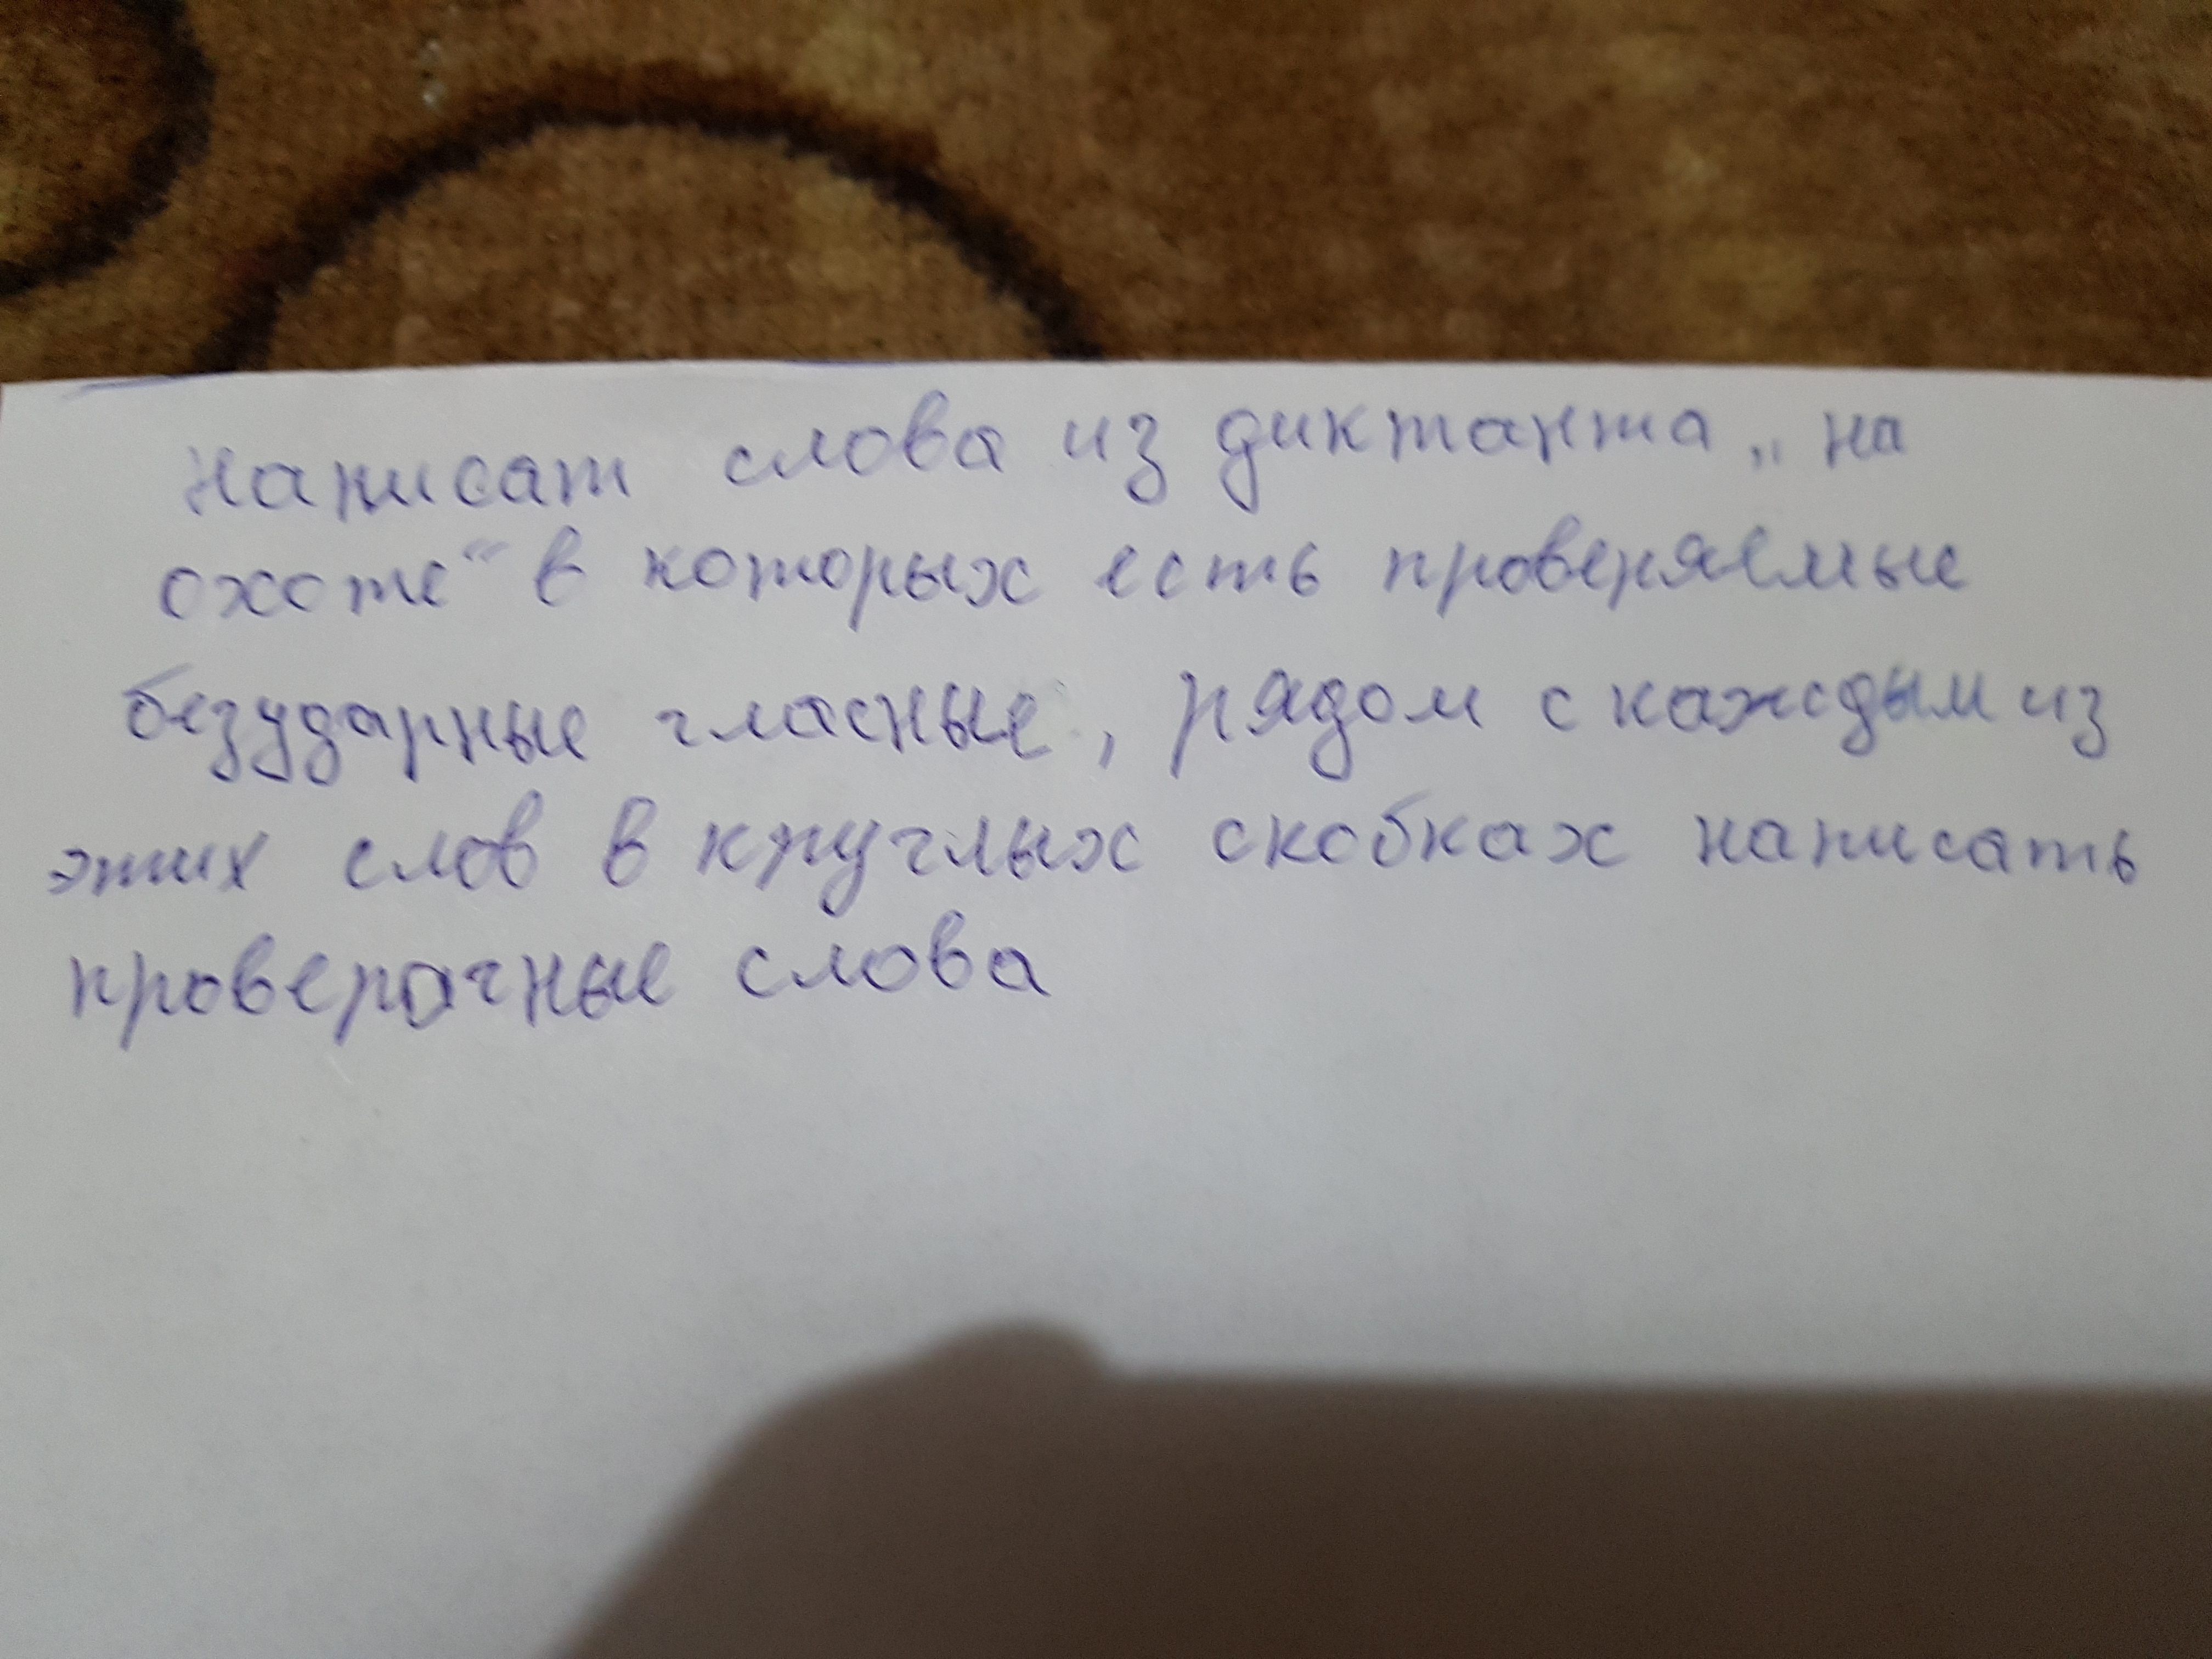 Написат слова из диктанта „на
охоте“ в которых есть проверяемые
безударные гласные, рядом с каждым из
этих слов в круглых скобках написать
проверочные слова